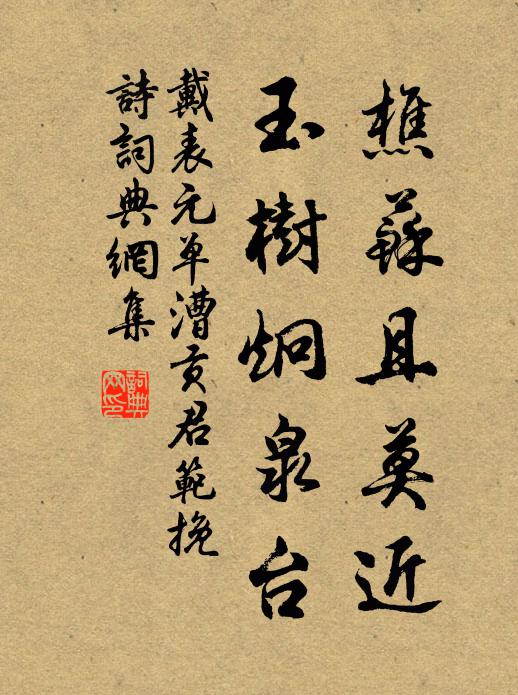 樵蘇且莫近
玉樹炯泉台
戴表元单漕贡君範挽
詩詞典網集
詞典
网印